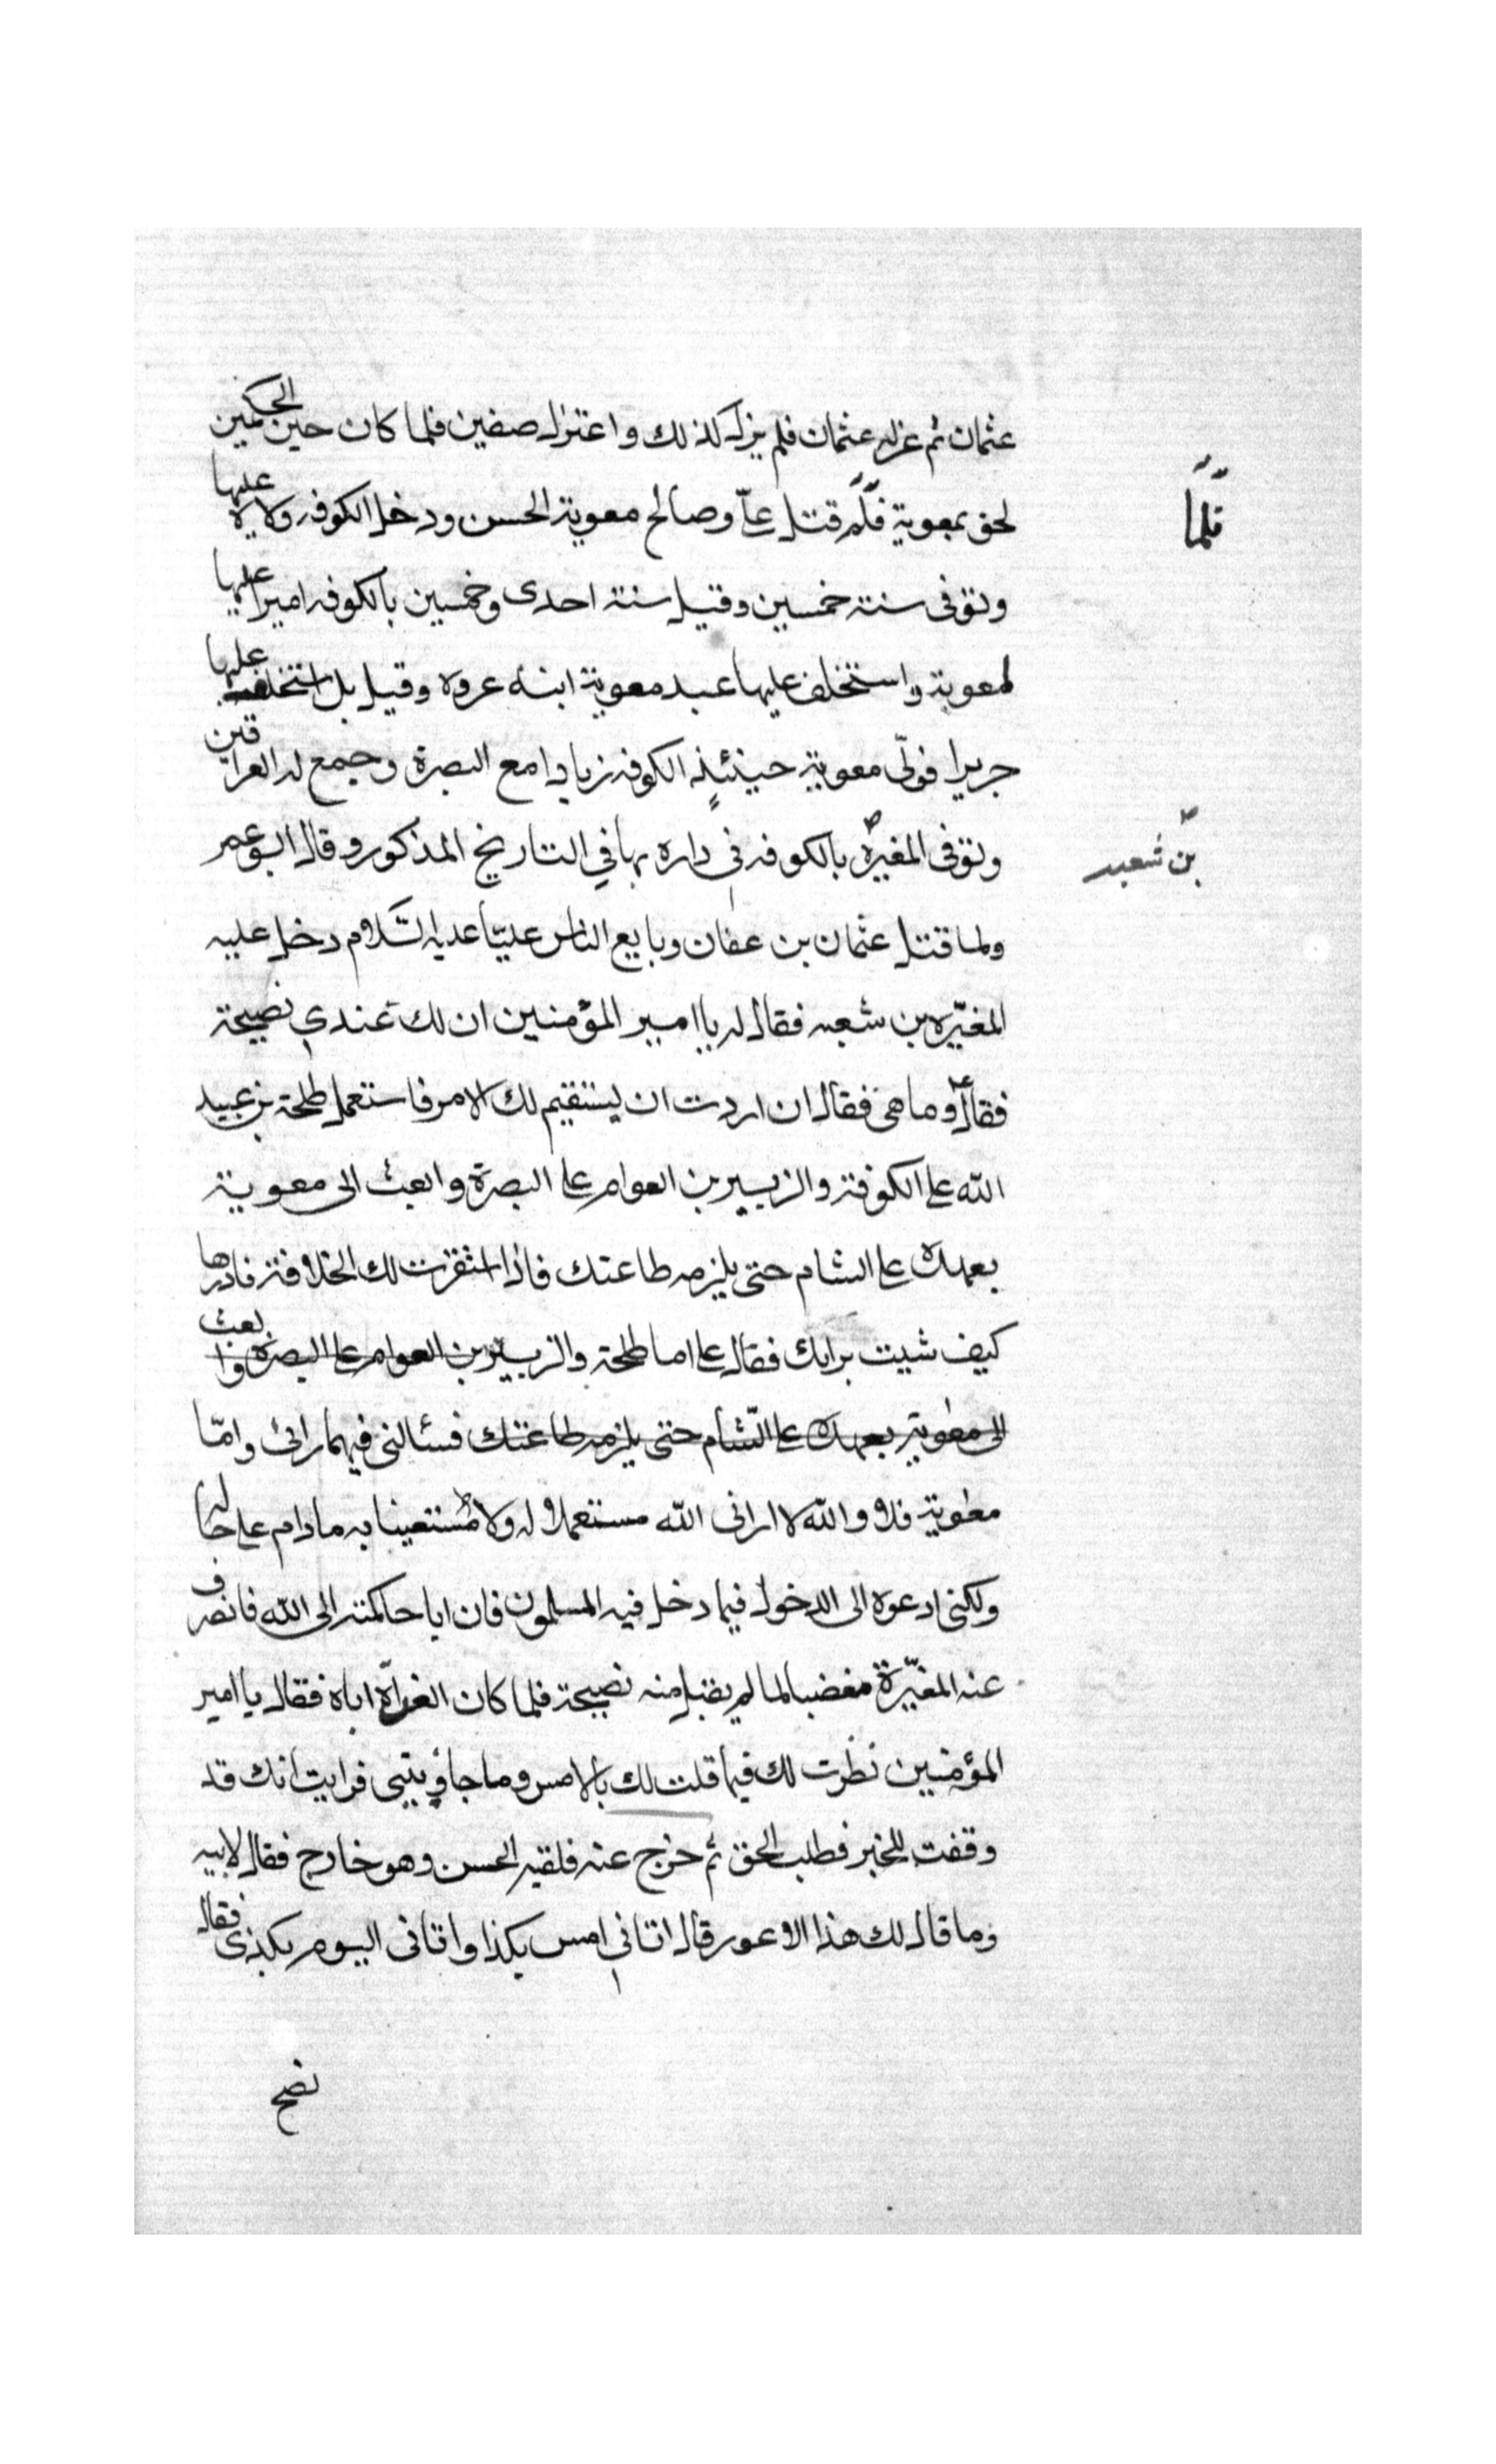 عثمان ثم عزله عثمان فلم يزل كذلك واعتزل صفين فلما كان حين الحكمين
لحق بمعوية فلم قتل علىّ وصالح معوية الحسن ودخل الكوفه ولاه عليها
فلمّا
وتوفى سنة خمسين وقيل سنة احدى وخمسين بالكوفه اميرا عليها
لمعوية واستخلف عليها عبد معوية ابنه عروه وقيل بل استخلف عليها
جريرا فولّى معوية حينئذٍ الكوفه زيادا مع البصرة وجمع له العراقين
وتوفى المغيرة بالكوفه في داره بها في التاريخ المذكور وقال ابو عمر
بن شعبه
ولما قتل عثمان بن عفان وبايع الناس عليّا عليه السّلام دخل عليه
المغيّره بن شعبه فقال له يا امير المؤمنين ان لك عندي نصيحة
فقال وما هى فقال ان اردت ان ليستقيم لك الامر فاستعمل طلحة بن عبيد
الله على الكوفة والزبير بن العوام على البصرة وابعث الى معوية
بعهده على الشام حتى يلزمه طاعتك فاذا استقرت لك الخلافة فادرها
كيف شيت برايك فقال على اما طلحة والزبير بن العوام على البصرة وابعث
الى معوية بعهده على الشّام حتى يلزمه طاعتك فسئالنى فيهما رائى وامّا
معوية فلا والله لا ارانى الله مستعملا له ولا مستعينا به مادام على حاله
ولكنى ادعوه الى الدخول فيما دخل فيه المسلمون فان ابا حاكمته الى الله فانصرف
عنه المغيّرة مغضبا لما لم يقبل منه نصيحة فلما كان الغد اتاه فقال يا امير
المؤمنين نظرت لك فيما قلت لك بالامس وما جاوبتنى فرايت انك قد
وقفت للخير فطلب الحق ثم خرج عنه فلقيه الحسن وهو خارج فقال لابيه
وما قال لك هذا الاعور قال اتانى امس بكذا واتانى اليوم بكذى فقال
نصح